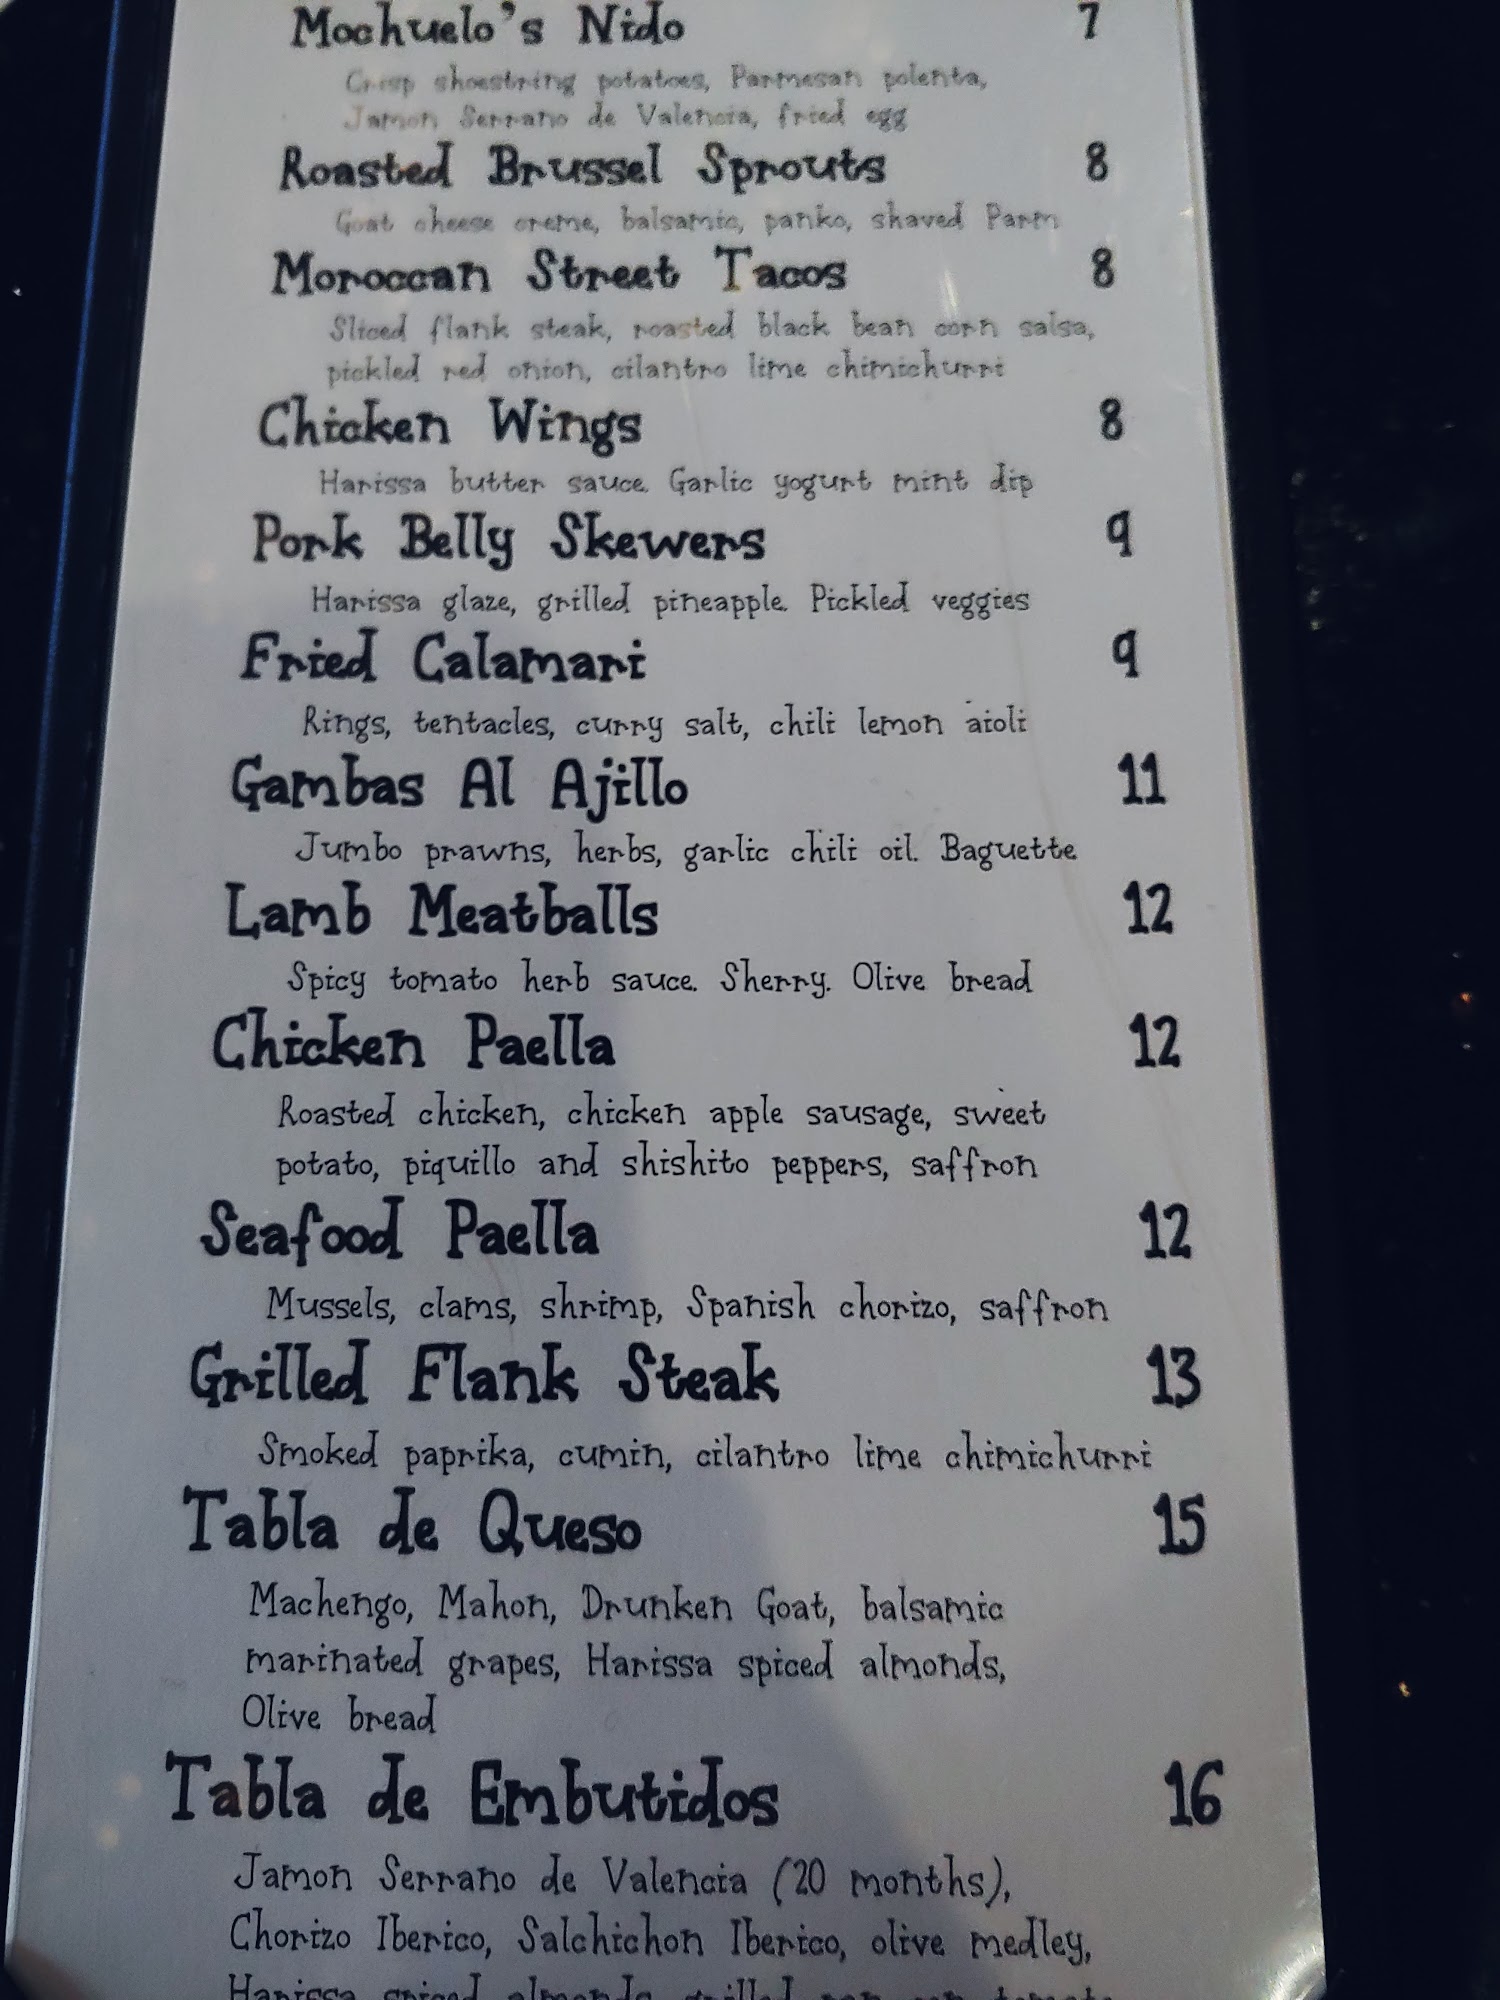 Mochuelo's Nido 7
Crisp shoestring potatoes, Parmesan polenta,
Jamon Serrano de Valencia, fried egg
Roasted Brussel Sprouts 8
Goat cheese creme, balsamic, panko, shaved Parm
Moroccan Street Tacos 8
Sliced flank steak, roasted black bean corn salsa,
pickled red onion, cilantro lime chimichurri
Chicken Wings 8
Harissa butter sauce. Garlic yogurt mint dip
Pork Belly Skewers 9
Harissa glaze, grilled pineapple. Pickled veggies
Fried Calamari 9
Rings, tentacles, curry salt, chili lemon aioli
Gambas Al Ajillo 11
Jumbo prawns, herbs, garlic chili oil. Baguette
Lamb Meatballs 12
Spicy tomato herb sauce. Sherry. Olive bread
Chicken Paella 12
Roasted chicken, chicken apple sausage, sweet
potato, piquillo and shishito peppers, saffron
Seafood Paella 12
Mussels, clams, shrimp, Spanish chorizo, saffron
Grilled Flank Steak 13
Smoked paprika, cumin, cilantro lime chimichurri
Tabla de Queso 15
Machengo, Mahon, Drunken Goat, balsamic
marinated grapes, Harissa spiced almonds,
Olive bread
Tabla de Embutidos 16
Jamon Serrano de Valencia (20 months),
Chorizo Iberico, Salchichon Iberico, olive medley,
Harissa spiced almonds, grilled pan con tomate